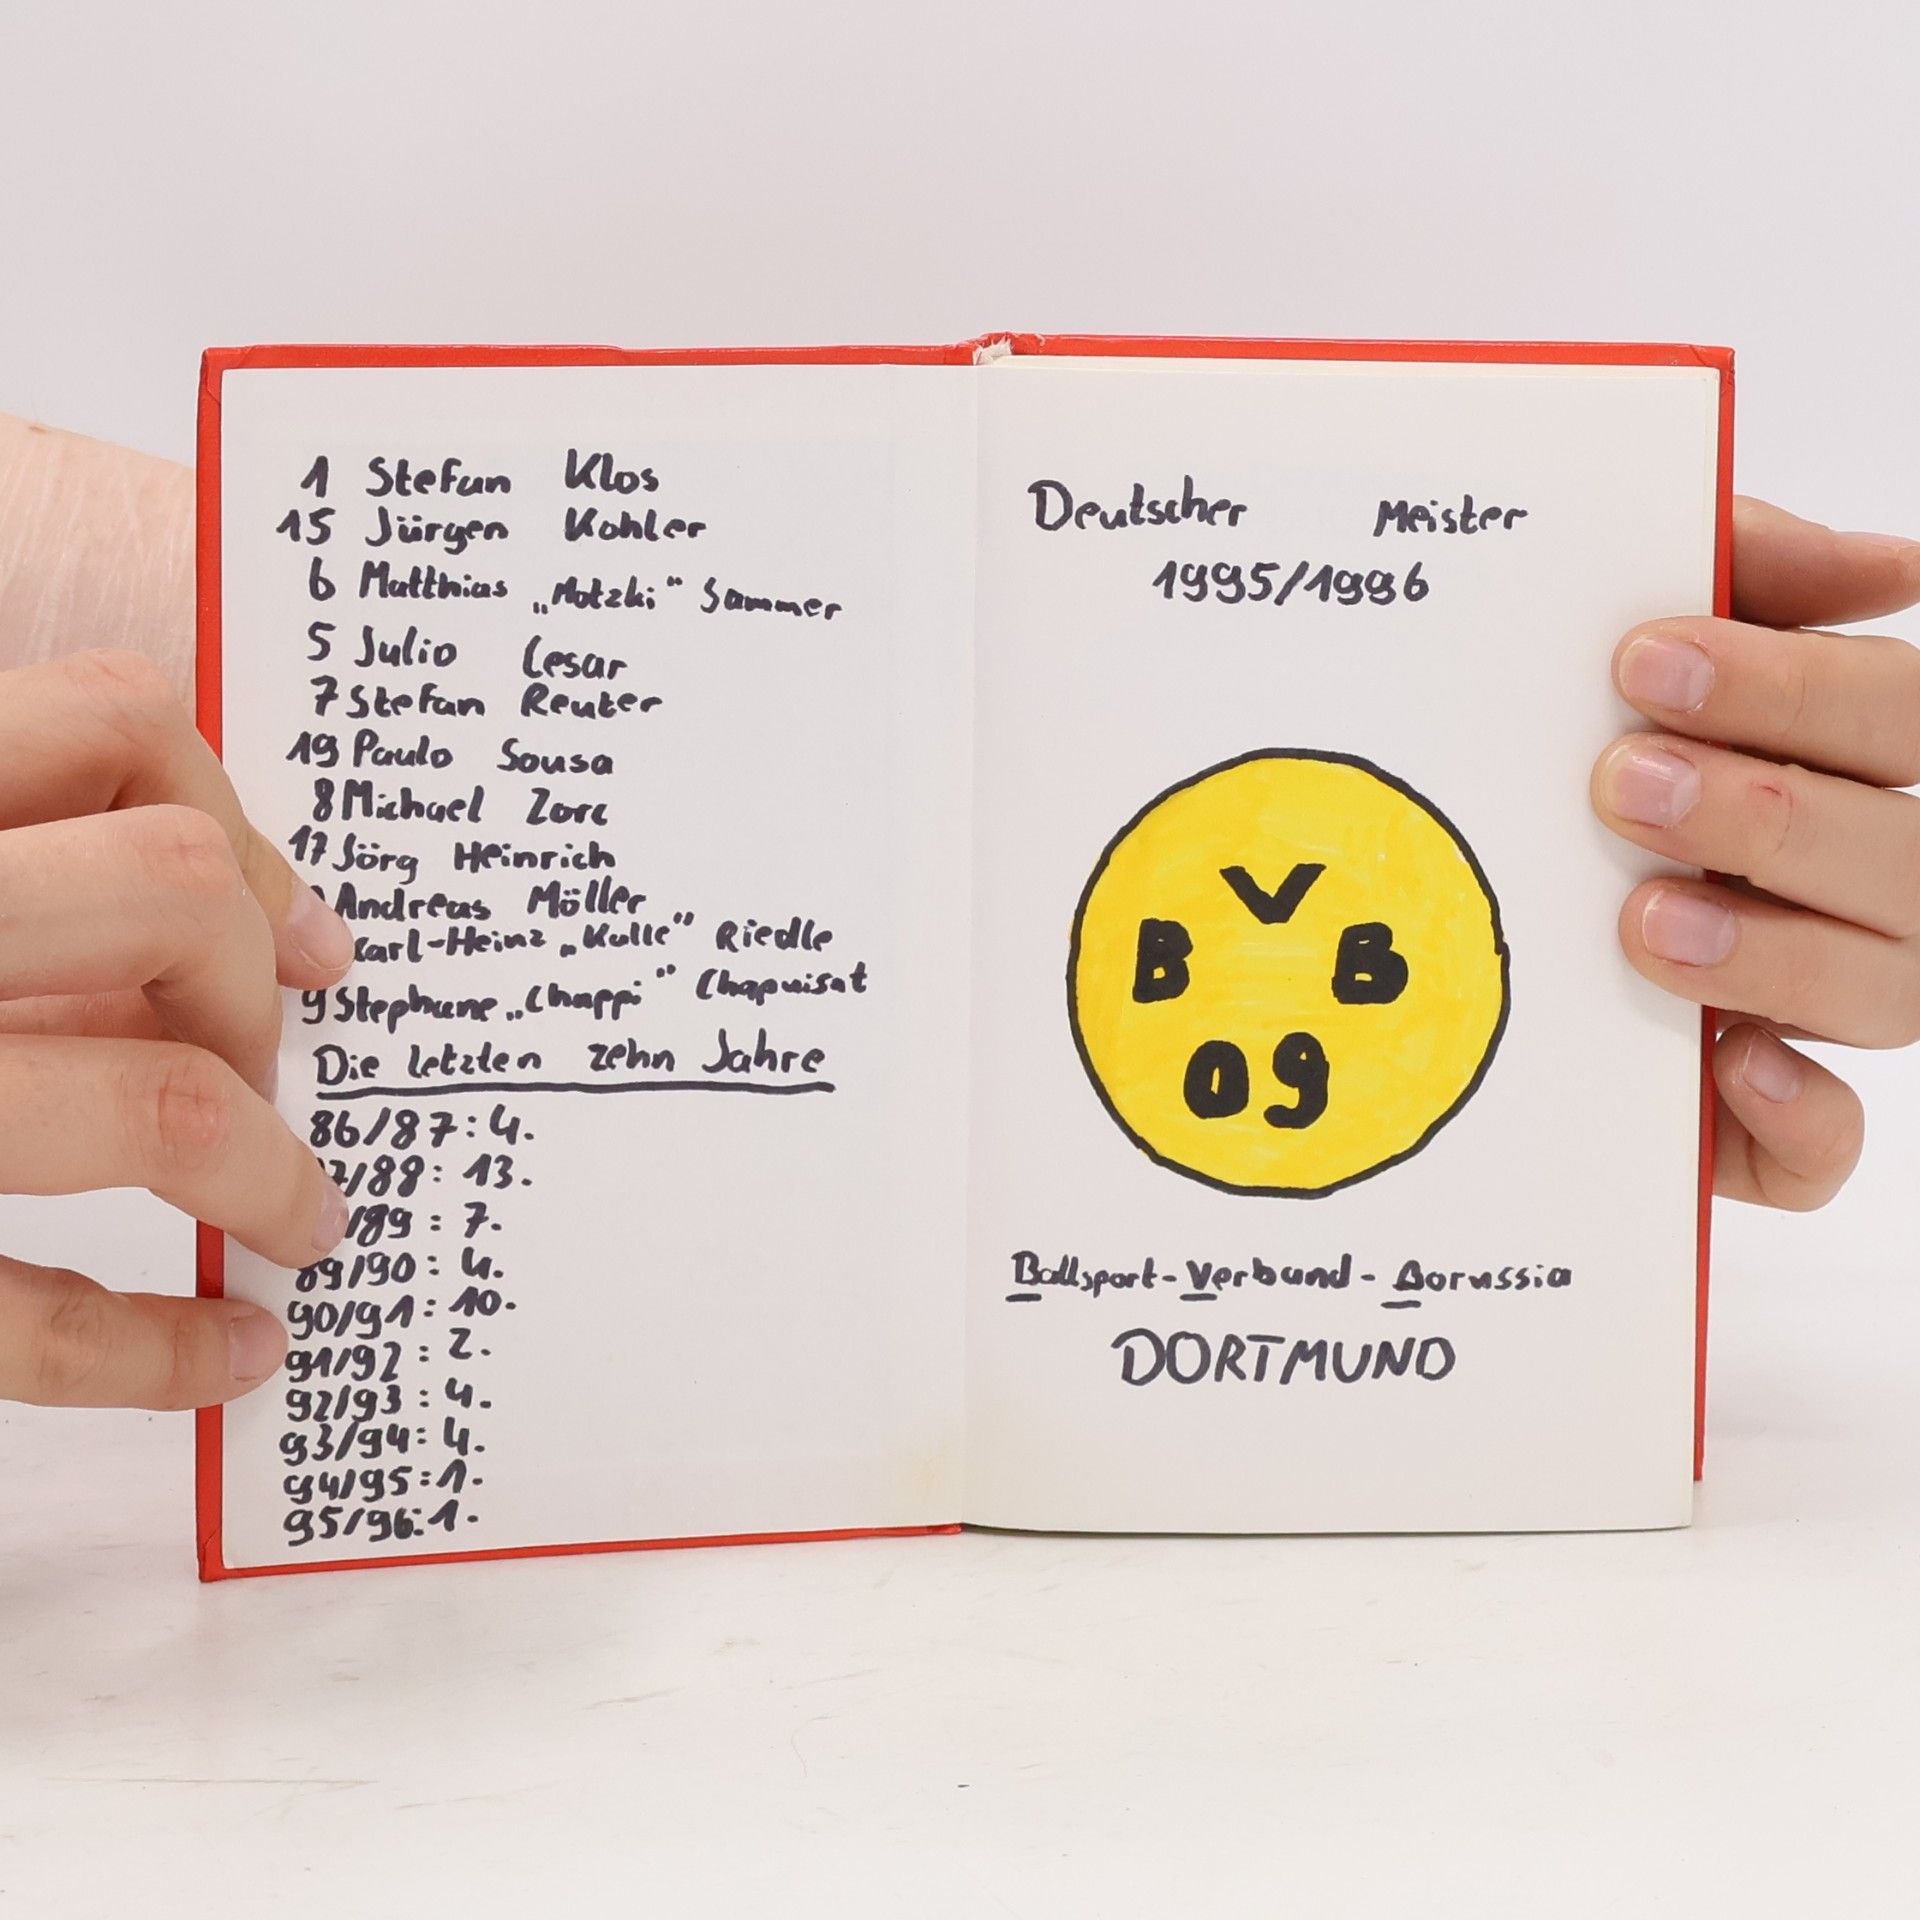 1 Stefan Klos
15 Jürgen Kohler
6 Matthias „Motzki“ Sammer
5 Julio Cesar
7 Stefan Reuter
19 Paulo Sousa
8 Michael Zorc
17 Jörg Heinrich
Andreas Möller
Karl-Heinz „Kalle“ Riedle
9 Stephane „Chappi“ Chapuisat
Die letzten zehn Jahre
86/87: 4.
7/88: 13.
/89: 7.
89/90: 4.
90/91: 10.
91/92: 2.
92/93: 4.
93/94: 4.
94/95: 1.
95/96: 1.
Deutscher Meister
1995/1996
V
B B
09
Ballsport-Verband-Borussia
DORTMUND